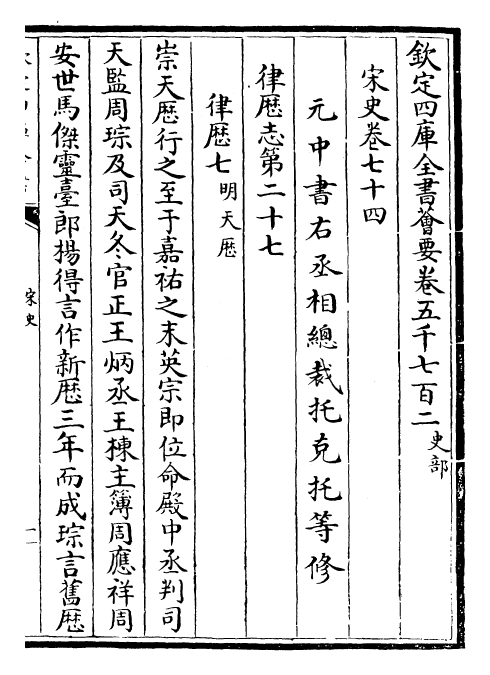 欽定四庫全書薈要卷五千七百二史部
宋史卷七十四
元中書右丞相總裁托克托等修
律厯志第二十七
律厯七明天厯
崇天厯行之至于嘉祐之末英宗即位命殿中丞判司
天監周琮及司天冬官正王炳丞王棟主簿周應祥周
安世馬傑靈臺郎楊得言作新厯三年而成琮言舊厯
宋史
一